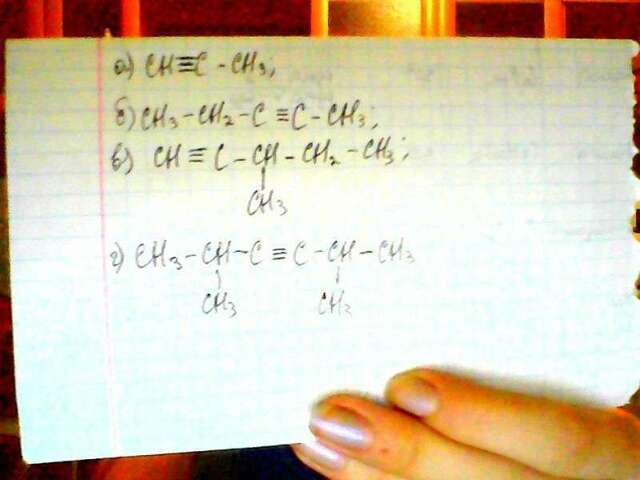 а) CH≡C-CH3;
б) CH3-CH2-C≡C-CH3;
в) CH≡C-CH-CH2-CH3;
CH3
г) CH3-CH-C≡C-CH-CH3
CH3 CH3